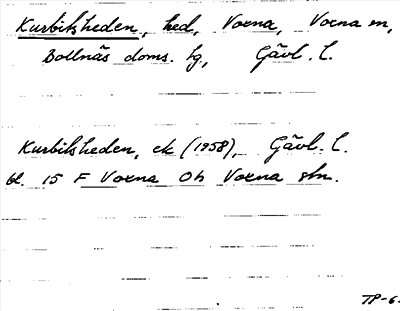 Kurbitsheden, hed, Voxna, Voxna sn,
Bollnäs doms. lg, Gävl. l.
Kurbitsheden, ek (1958), Gävl. l.
bl. 15 F Voxna Oh Voxna sn.
TP-6.